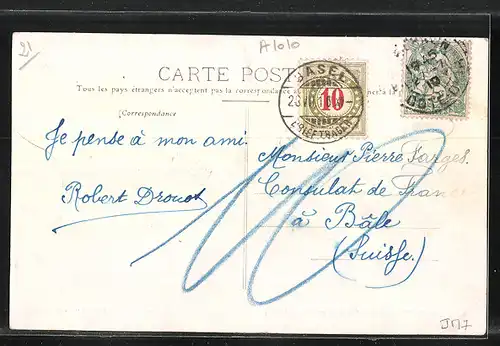 21
A1010
CARTE POST
Tous les pays étrangers n'acceptent pas la correspondance a
(Correspondance)
BASEL
10
BRIEFTRÄGER
Je pense à mon ami.
Robert Drouot
Monsieur Pierre Farges.
Consulat de France
à Bâle
(Suisse.)
10
JM7